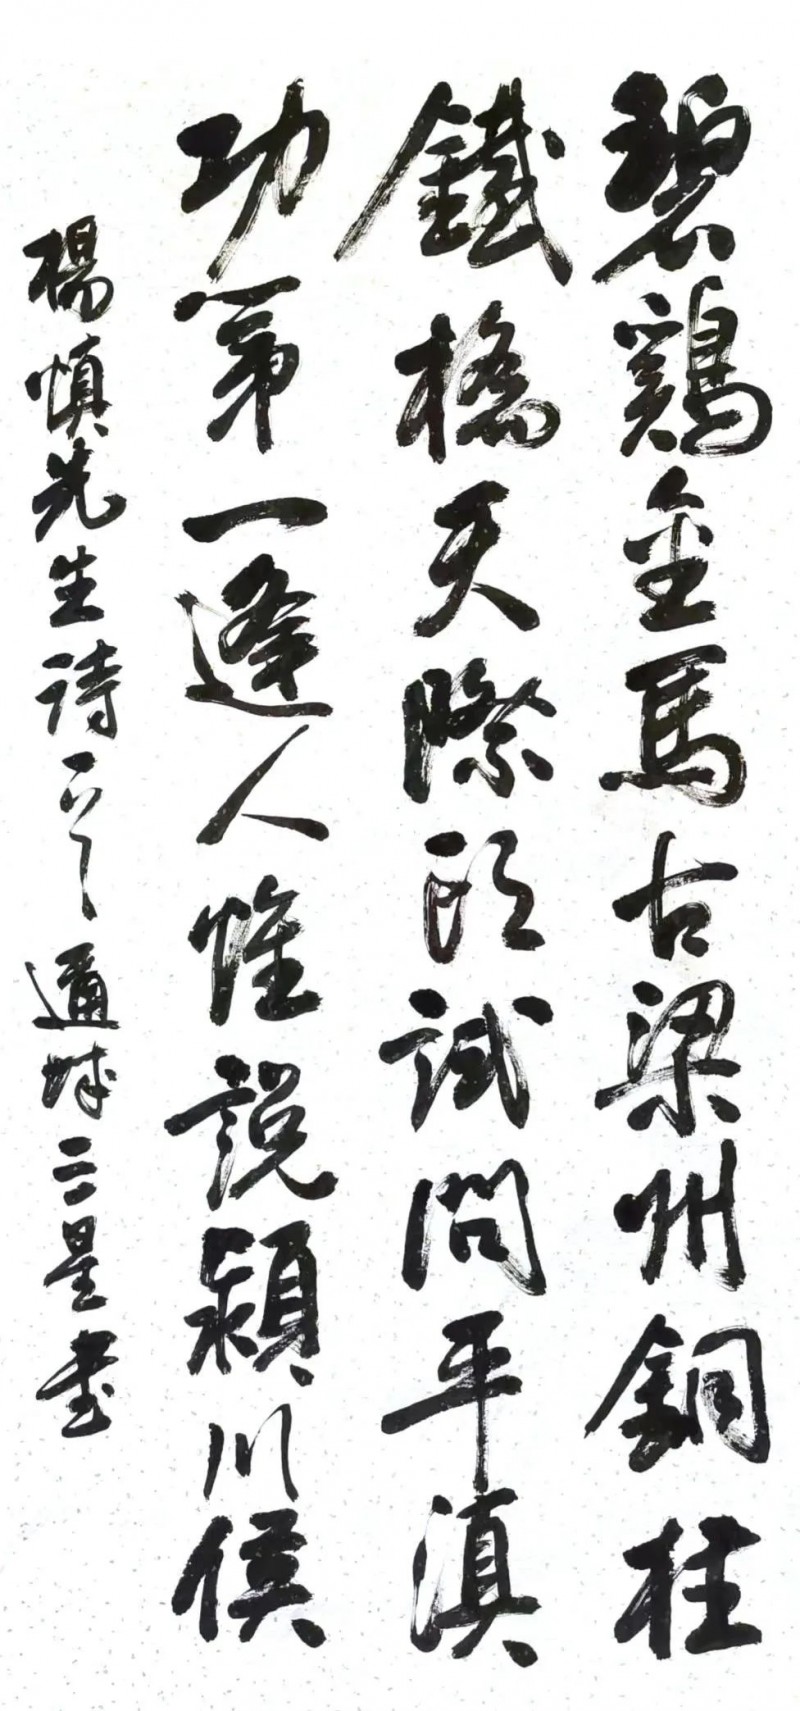 碧鷄金馬古梁州銅柱
鐵橋天際頭試問平滇
功第一逢人惟說潁川侯
楊慎先生詩一首邇城三星書